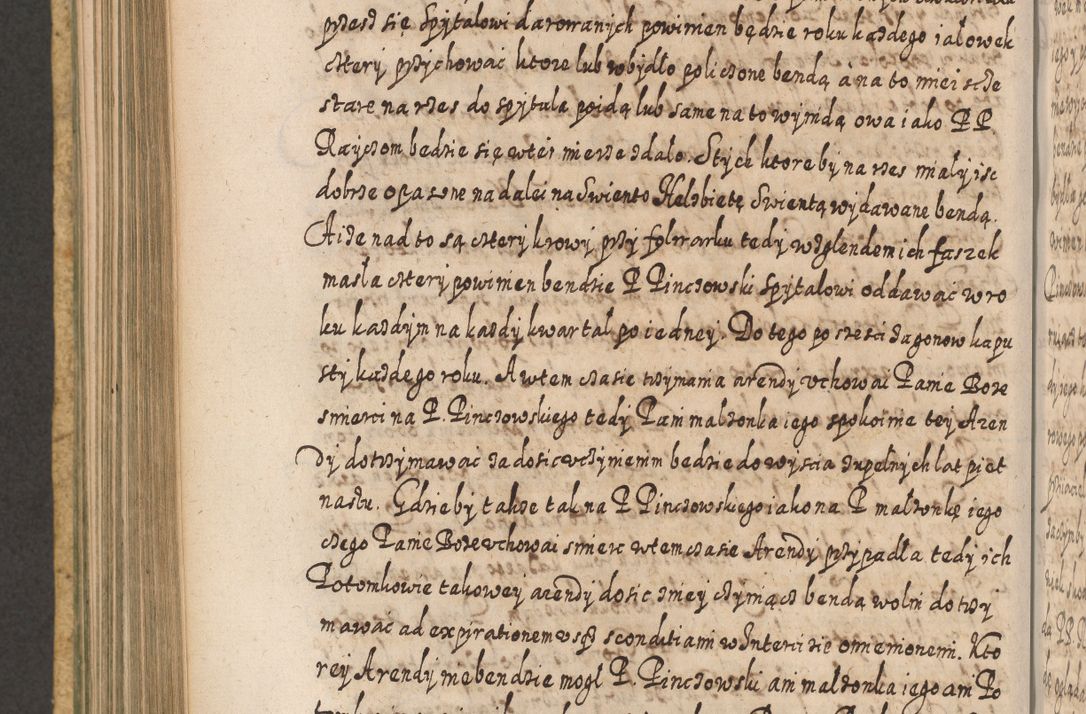 przesz się Spytalowi darowanych powinien będzie roku każdego iałowek
cztery przychować ktore lub wbydło policzone bendą à na to mieiscze
stare na rzes do spytula poidą lub same na to wynidą owa iako P P.
Rayczom bedzie się wtei mierze zdało. Stych ktore by na rzes miały isc
dobrze opasone na dalei na Swiento Helzbietę Swientą wydawane bendą.
A ize nad to są cztery krowy przy folwarku tedy wzglendem ich faszek
masła cztery powinien bendzie P Pinczowski Spytalowi oddawać w ro
ku każdym na każdy kwartał po iedney. Do tego po sześci zagonow kapu
sty każdego roku. A wtem czasie trzymania arendy uchowai Panie Boze
smierci na P. Pinczowskiego tedy Pani małzonka iego spokoinie tey Aren
dy dotrzymawać za dosic uczynieniem bedzie do wyscia zupełnych lat piet
nastu. Gdzieby takze tak na P Pinczowskiego iako na P małzonkę iego
czego Panie Boze uchowai smierc wtem czasie Arendy przypadla tedy ich
Potomkowie takowey arendy dosic zniey czyniącz bendą wolni dotrzy
mawać ad expirationem wsp sconditiami w Intercizie omnienionemi. Kto
rey Arendy nie bendzie mogl P. Pinczowski ani małzonka iego ani Po